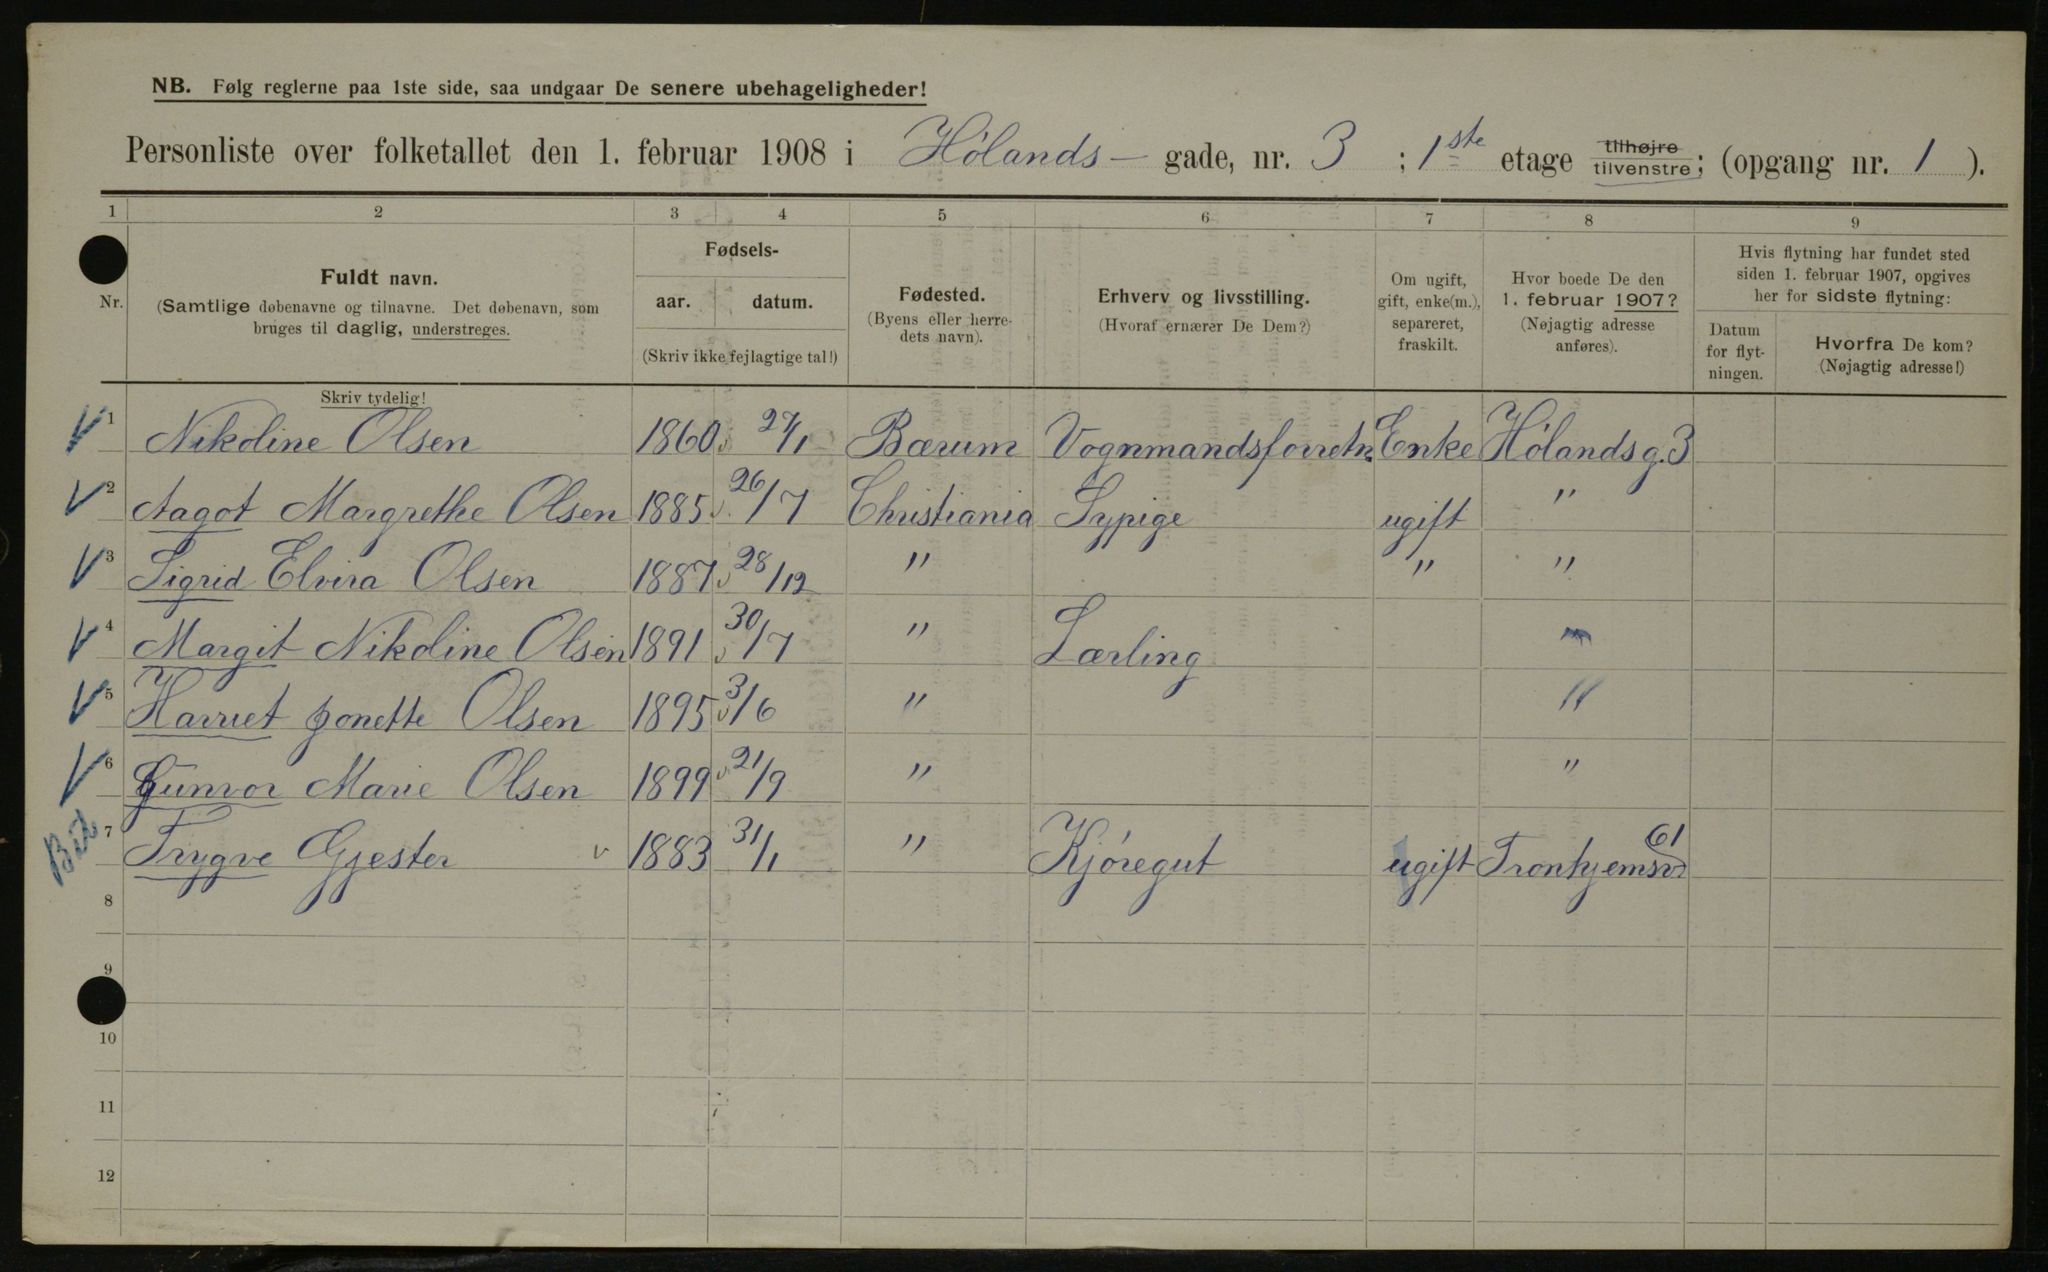 NB. Følg reglerne paa 1ste side, saa undgaar De senere ubehageligheder!
Personliste over folketallet den 1. februar 1908 i Hölands- gade, nr. 3 ; 1ste etage tilhøjre tilvenstre; (opgang nr. 1 ).
1 2 3 4 5 6 7 8 9
Nr.
Fuldt navn.
(Samtlige døbenavne og tilnavne. Det døbenavn, som
bruges til daglig, understreges.
Skriv tydelig!
Fødsels-
aar. datum.
(Skriv ikke fejlagtige tal!)
Fødested.
(Byens eller herre-
dets navn).
Erhverv og livsstilling.
(Hvoraf ernærer De Dem?)
Om ugift,
gift, enke(m.),
separeret,
fraskilt.
Hvor boede De den
1. februar 1907?
(Nøjagtig adresse
anføres).
Hvis flytning har fundet sted
siden 1. februar 1907, opgives
her for sidste flytning:
Datum
for flyt-
ningen.
Hvorfra De kom?
(Nøjagtig adresse!)
1 Nikoline Olsen 1860 27/1 Bærum Vognmandsforretn. Enke Hölandsg. 3
2 Aagot Margrethe Olsen 1885 26/7 Christiania Sypige ugift "
3 Sigrid Elvira Olsen 1887 28/12 " " "
4 Margit Nikoline Olsen 1891 30/7 " Lærling "
5 Harriet Jonette Olsen 1895 3/6 " "
6 Gunvor Marie Olsen 1899 21/9 " "
7 Trygve Gjester 1883 31/1 " Kjöregut ugift Tronhjemsv 61
8
9
10
11
12